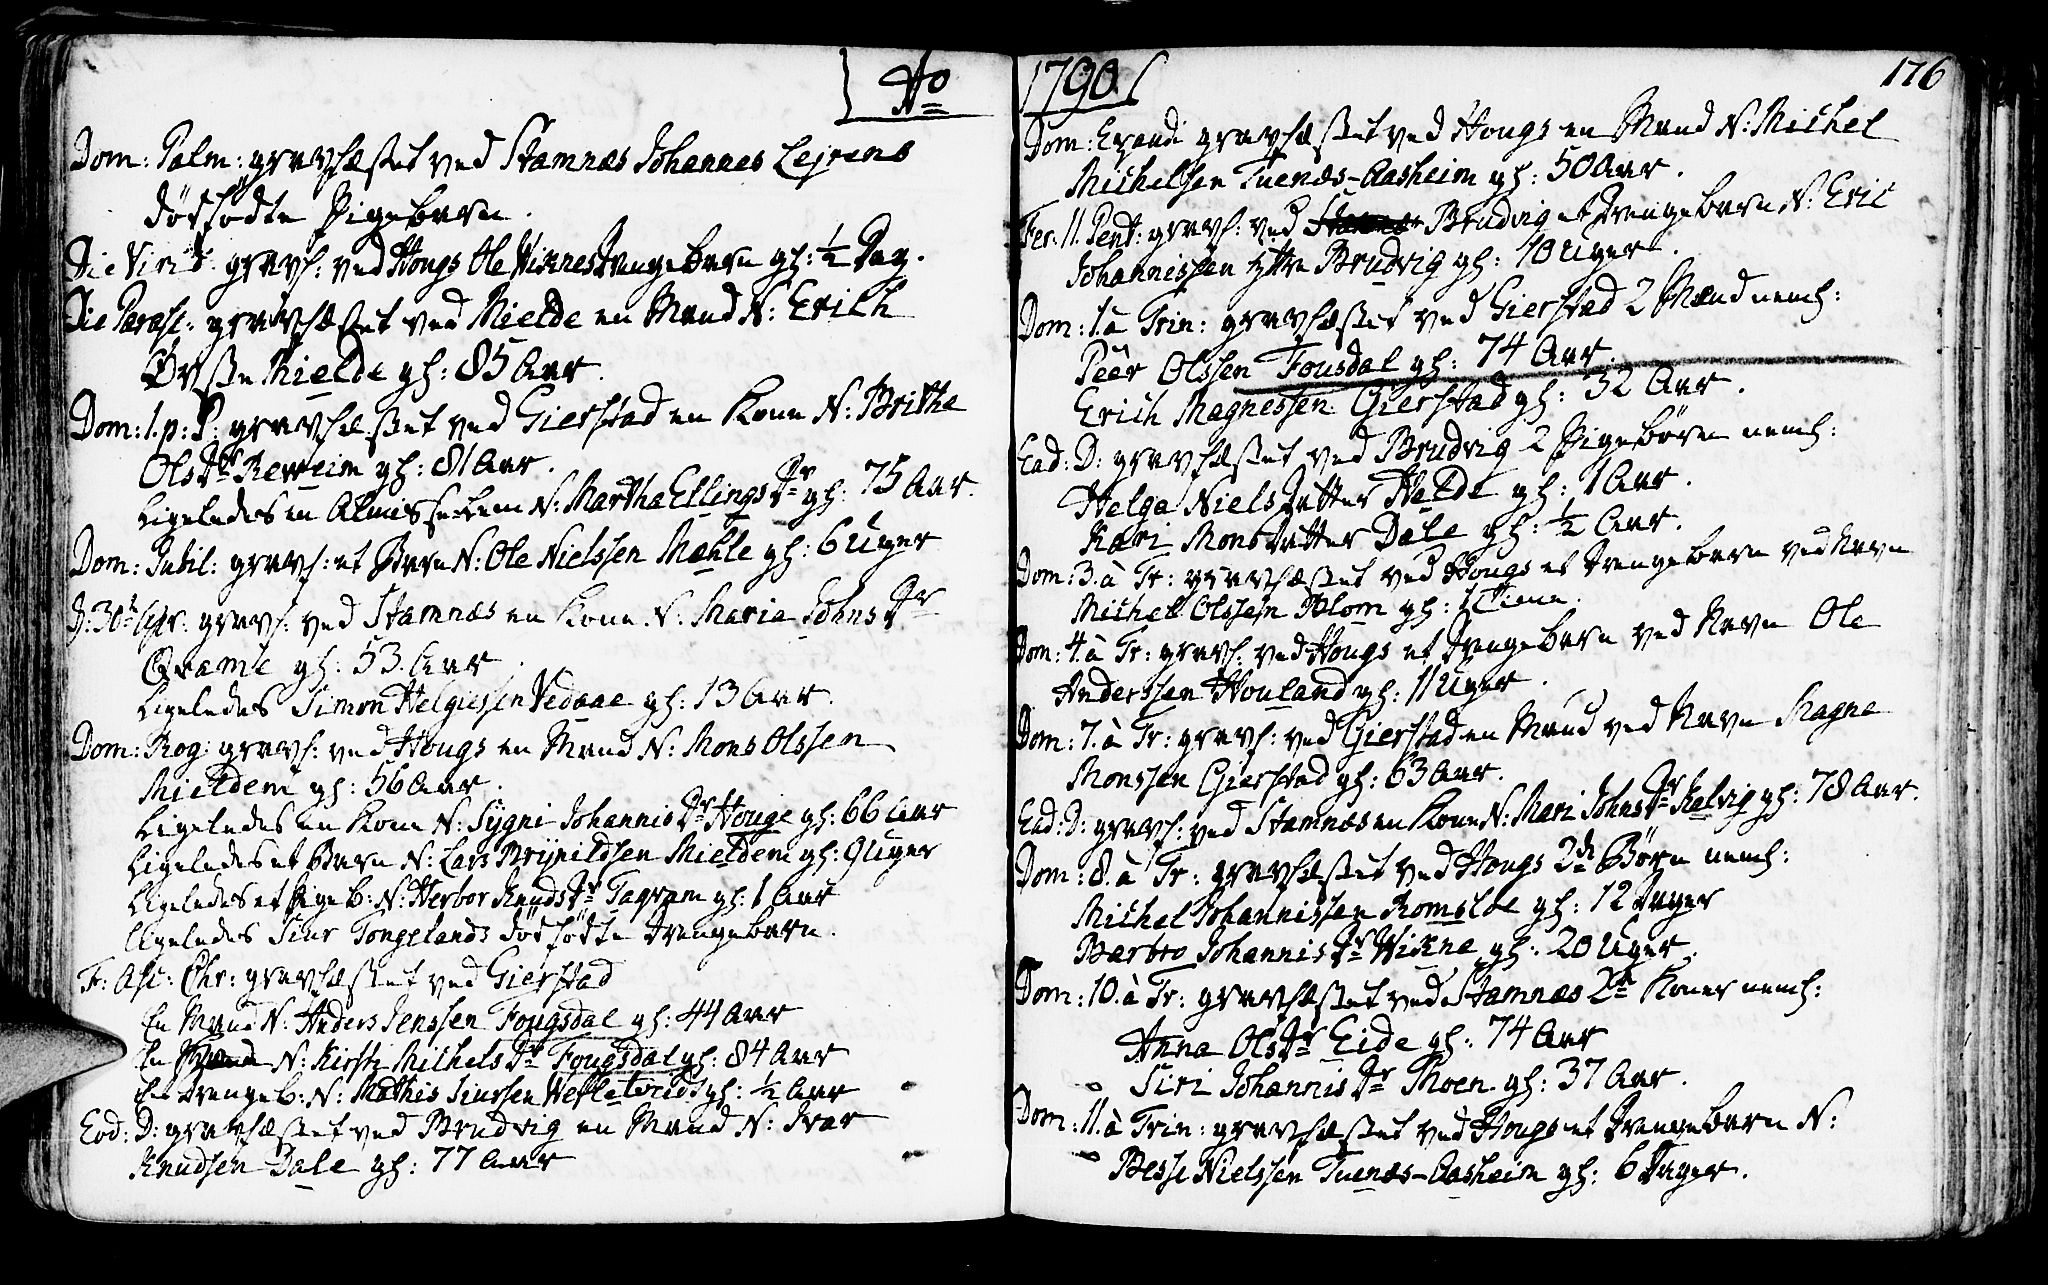 Ao
Dom: Palm: gravfæstet ved Stamnæs Johannes Lejrens
dødfødte Pigebarn.
Die Virid: gravf: ved Hougs Ole Wiknes drengebarn gl: ½ Dag.
Die Parasc: gravfæstet ved Mielde en Mand N: Erich
Mielde gl: 85 Aar.
Dom: 1. p: P: gravfæstet ved Gierstad en Kone N: Brithe
Olsdr Reweim gl: 81 Aar.
Ligeledes en Almisse-Lem N: Martha Ellingsdr gl: 75 Aar.
Dom: Jubil: gravf: et Barn N: Ole Nielssen Mæhle gl: 6 Uger
D: 30t Apr. gravf: ved Stamnæs en Kone N: Maria Johnsdr
Qvamle gl: 53 Aar.
Ligeledes Simon Helgiessen Vedaae gl: 13 Aar.
Dom: Rog: gravf: ved Hougs en Mand N: Mons Olssen
Mieldem gl: 56 Aar.
Ligeledes en Kone N: Sygni Johannisdr Houge gl: 66 Aar
Ligeledes et Barn N: Lars Brynildsen Mieldem gl: 9 Uger
Ligeledes et Pigeb: N: Herbor Knudsdr Tagram gl: 1 Aar
Ligeledes Siur Tongelands dødfødte drengebarn.
F: Asc: Chr: gravfæstet ved Gierstad
En Mand N: Anders Jenssen Fougsdal gl: 44 Aar
En N: Kirsti Michelsdr Fougsdal gl: 84 Aar
Et drengeb: N: Mathis Siurssen gl: ½ Aar
Eod: D: gravfæstet ved Brudvig en Mand N: Ivar
Knudsen Dale gl: 77 Aar
1790
176
Dom: Exaudi gravfæstet ved Hougs en Mand N: Michel
Michelsen Tuenæs-Aasheim gl: 50 Aar.
Fer. 11. Pent: gravf: ved Brudvig et drengebarn N: Eric
Johannissen ytre Brudvig gl: 10 Uger.
Dom: 1. à Trin: gravfæstet ved Gierstad 2 Mænd neml:
Peér Olssen Fousdal gl: 74 Aar.
Erich Magnessen Gierstad gl: 32 Aar.
Ead: D: gravfæstet ved Brudvig 2 Pigebørn neml:
Helga Nielsdatter Hælde gl: 1 Aar.
Kari Monsdatter Dale gl: ½ Aar.
Dom: 3. à Tr: gravfæstet ved Hougs et drengebarn ved Navn
Michel Olssen Blom gl: 1 Time.
Dom: 4. à Tr: gravf: ved Hougs et drengebarn ved Navn Ole
Anderssen Houland gl: 11 Uger.
Dom: 7. à Tr: gravf: ved Gierstad en Mand ved Navn Magne
Monssen Gierstad gl: 63 Aar.
Ead: D: gravf: ved Stamnæs en Kone N: Mari Johnsdr Kalvig gl: 78 Aar.
Dom: 8. à Tr: gravfæstet ved Hougs 2de Børn neml:
Michel Johannissen Romsloe gl: 12 Dager
Barbro Johannisdr Wikne gl: 20 Uger.
Dom: 10. à Tr: gravfæstet ved Stamnæs 2de Koner neml:
Anna Olsdr Eide gl: 74 Aar
Siri Johannisdr Moen gl: 37 Aar.
Dom: 11. à Trin: gravfæstet ved Hougs et drengebarn N:
Besse Nielssen Tuenæs-Aasheim gl: 6 Dager.